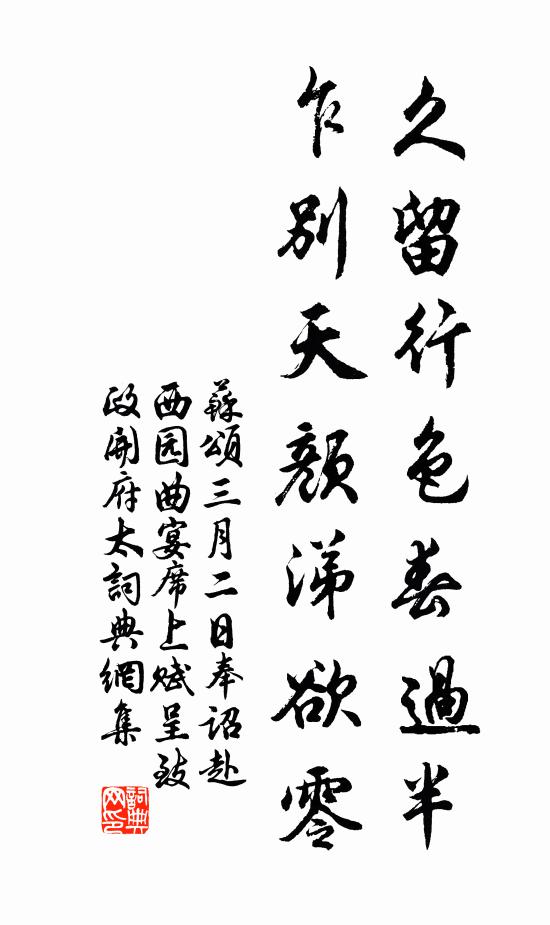 久留行色春過半
乍別天顏涕欲零
蘇頌三月二日奉詔赴
西园曲宴席上赋呈致
政開府太詞典網集
詞典
网印